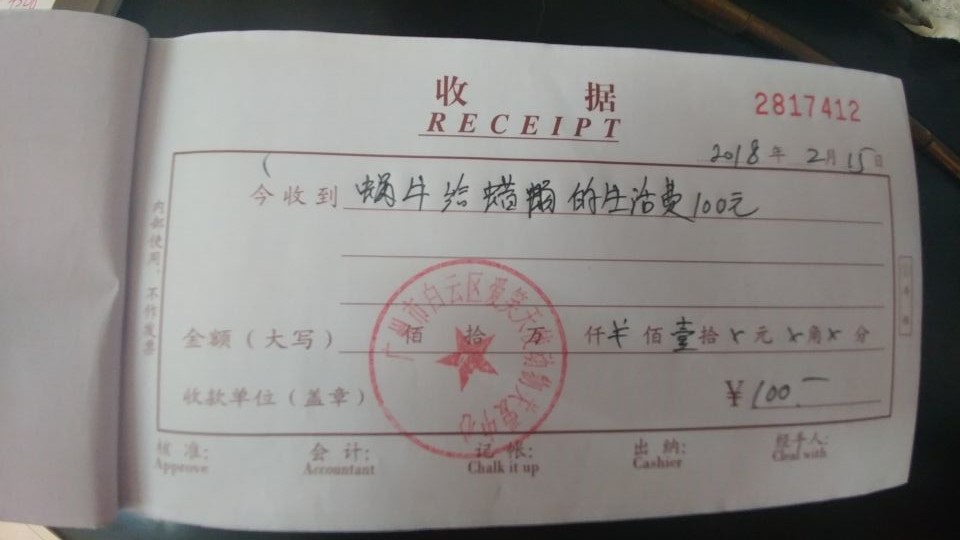 收 据
RECEIPT
2817412
2018年 2月 15日
今收到 蜗牛给蜡蝈的生活费100元
金额（大写） 佰 拾 万 仟 半 佰 壹 拾 x 元 x 角 x 分
收款单位（盖章） ¥100.一
核 准: 会 计: 记 帐: 出 纳: 经手人:
Approve Accountant Chalk it up Cashier Cleal with
内部使用，不作发票
广州市白云区爱笑天
中心